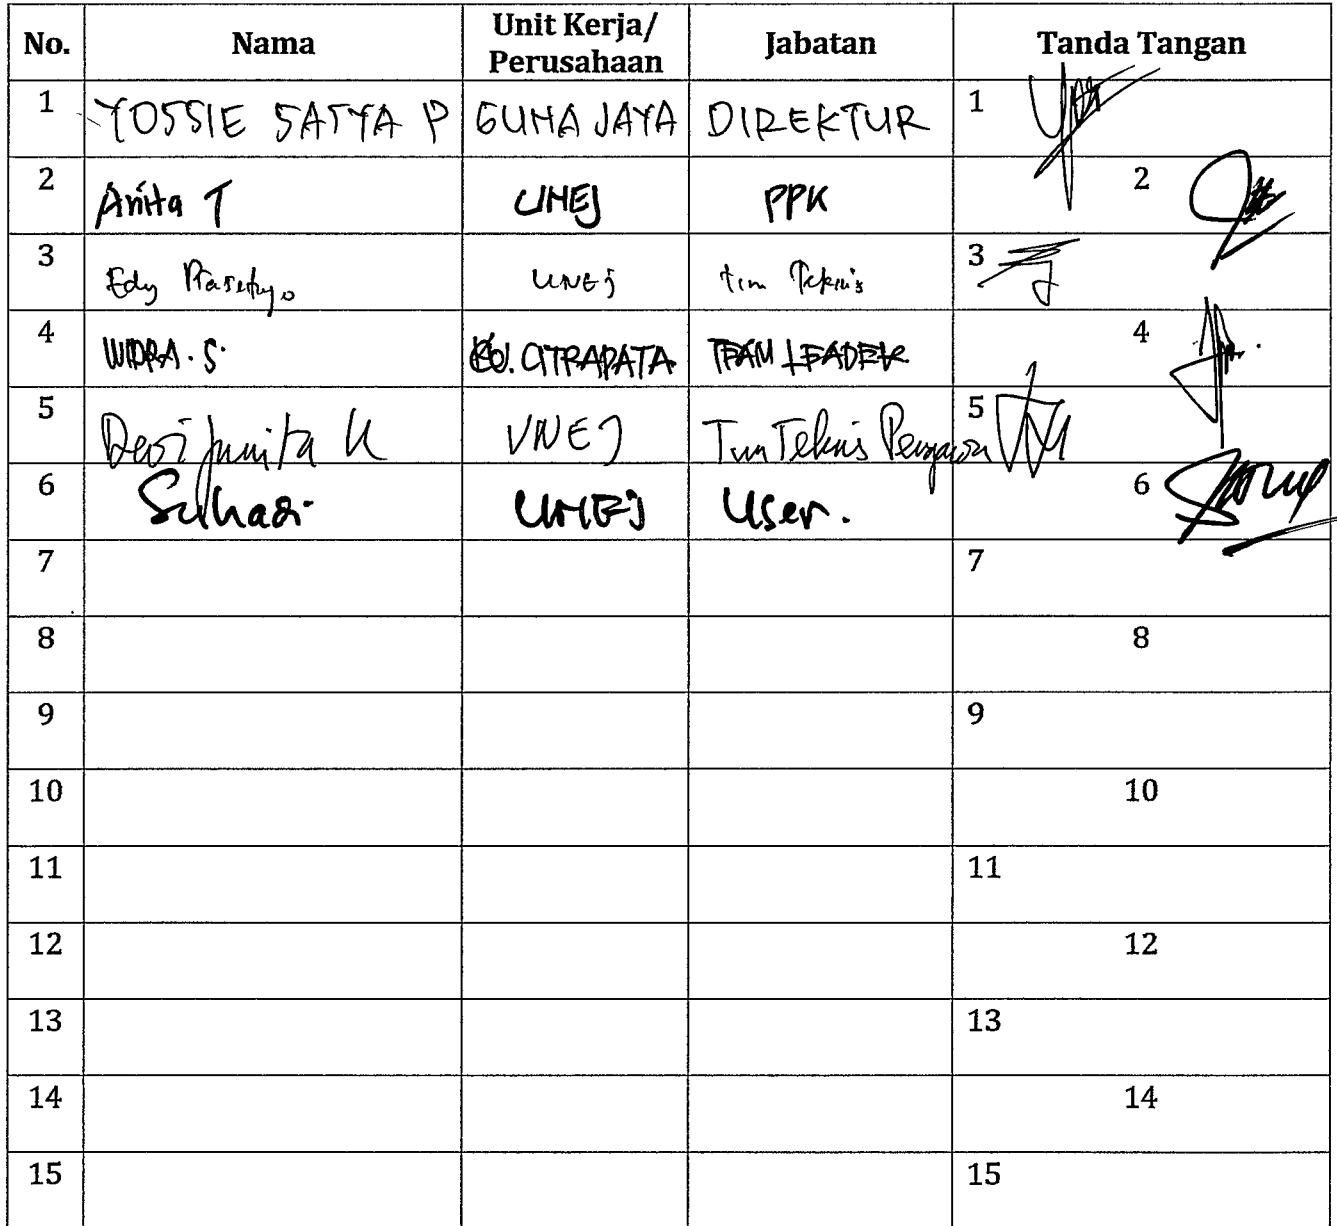 No. Nama Unit Kerja/ Perusahaan Jabatan Tanda Tangan
1 YOSSIE SATYA P GUNA JAYA DIREKTUR 1
2 Anita T UNEJ PPK 2
3 Edy Prasetyo UNEJ tim Teknis 3
4 S. CITRADATA TEAM LEADER 4
5 Devi Junita K UNEJ Tim Teknis 5
6 Suhadi UNEJ User. 6
7 7
8 8
9 9
10 10
11 11
12 12
13 13
14 14
15 15